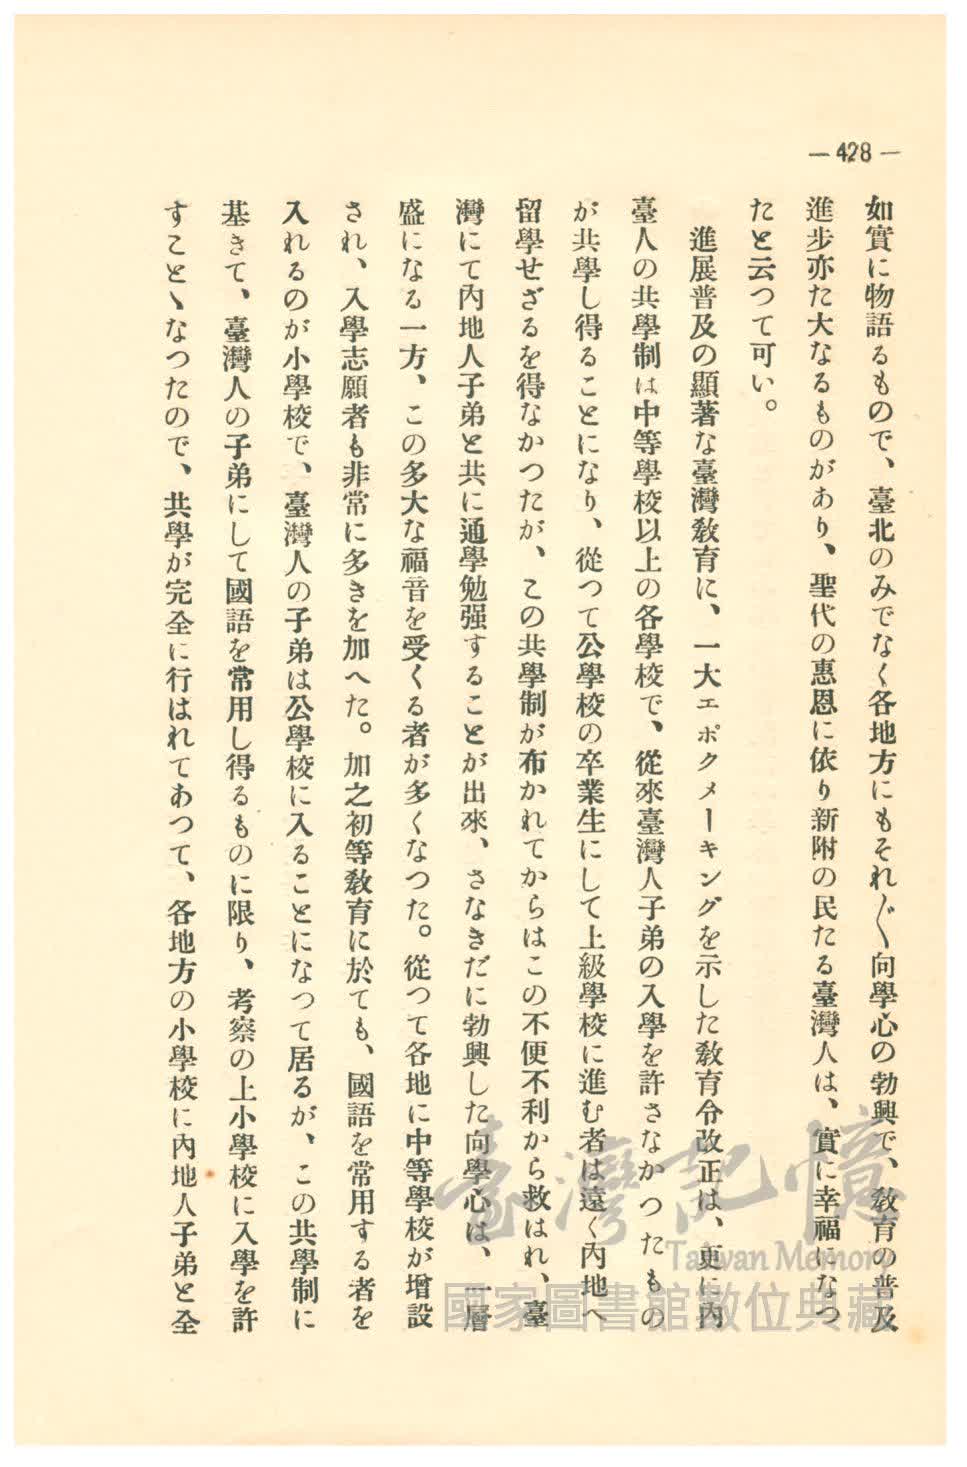 —428—
如實に物語るもので、臺北のみでなく各地方にもそれ〴〵向學心の勃興で、教育の普及
進步亦た大なるものがあり、聖代の惠恩に依り新附の民たる臺灣人は、實に幸福になつ
たと云つて可い。
進展普及の顯著な臺灣教育に、一大エポクメーキングを示した教育令改正は、更に內
臺人の共學制は中等學校以上の各學校で、從來臺灣人子弟の入學を許さなかつたもの
が共學し得ることになり、從つて公學校の卒業生にして上級學校に進む者は遠く內地へ
留學せざるを得なかつたが、この共學制が布かれてからはこの不便不利から救はれ、臺
灣にて內地人子弟と共に通學勉强することが出來、さなきだに勃興した向學心は、一層
盛になる一方、この多大な福音を受くる者が多くなつた。從つて各地に中等學校が增設
され、入學志願者も非常に多きを加へた。加之初等教育に於ても、國語を常用する者を
入れるのが小學校で、臺灣人の子弟は公學校に入ることになつて居るが、この共學制に
基きて、臺灣人の子弟にして國語を常用し得るものに限り、考察の上小學校に入學を許
すことゝなつたので、共學が完全に行はれてあつて、各地方の小學校に內地人子弟と全
臺灣記憶
Taiwan Memory
國家圖書館數位典藏